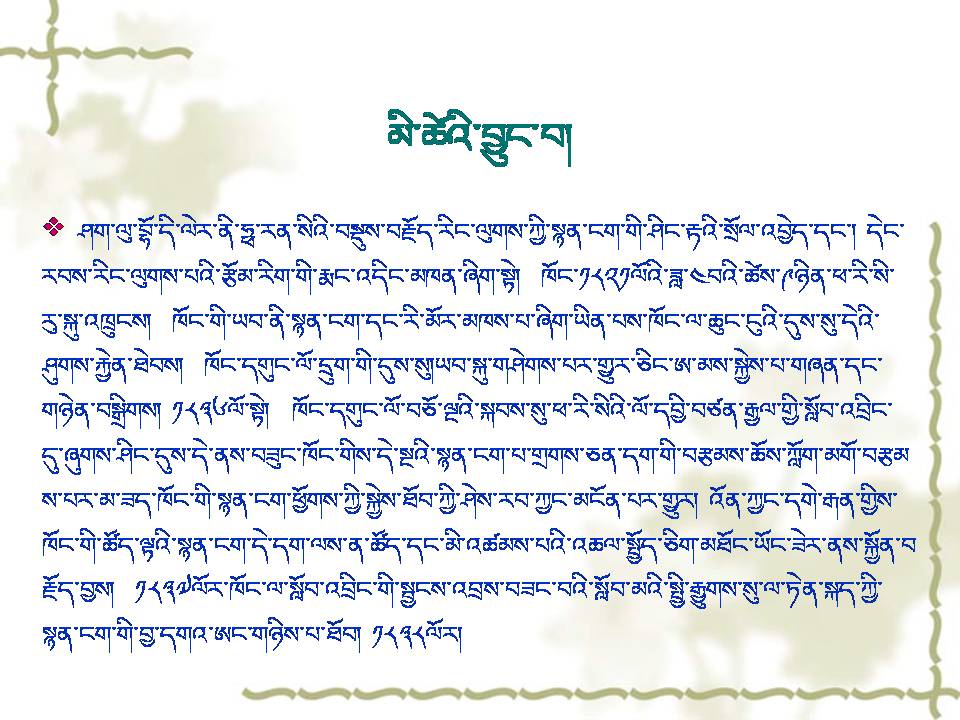 མི་ཚེའི་བྱུང་བ།
ཤག་ལུ་བྷོ་དི་ལེར་ནི་ཧྥ་རན་སིའི་བསྡུས་བརྗོད་རིང་ལུགས་ཀྱི་སྙན་ངག་གི་ཤིང་རྟའི་སྲོལ་འབྱེད་དང་། དེང་
རབས་རིང་ལུགས་པའི་རྩོམ་རིག་གི་རྨང་འདིང་མཁན་ཞིག་སྟེ། ཁོང་༡༨༢༡ལོའི་ཟླ་༤བའི་ཚེས་༩ཉིན་ཕ་རི་སི་
རུ་སྐུ་འཁྲུངས། ཁོང་གི་ཡབ་ནི་སྙན་ངག་དང་རི་མོར་མཁས་པ་ཞིག་ཡིན་པས་ཁོང་ལ་ཆུང་ངུའི་དུས་སུ་དེའི་
ཤུགས་རྐྱེན་ཐེབས། ཁོང་དགུང་ལོ་དྲུག་གི་དུས་སུ།ཡབ་སྐུ་གཤེགས་པར་གྱུར་ཅིང་ཨ་མས་སྐྱེས་པ་གཞན་དང་
གཉེན་བསྒྲིགས། ༡༨༣༦ལོ་སྟེ། ཁོང་དགུང་ལོ་བཅོ་ལྔའི་སྐབས་སུ་ཕ་རི་སིའི་ལོ་དབྱི་བཙན་རྒྱལ་གྱི་སློབ་འབྲིང་
དུ་ཞུགས་ཤིང་དུས་དེ་ནས་བཟུང་ཁོང་གིས་དེ་སྔའི་སྙན་ངག་པ་གྲགས་ཅན་དག་གི་བརྩམས་ཆོས་ཀློག་མགོ་བརྩམ
ས་པར་མ་ཟད་ཁོང་གི་སྙན་ངག་ཕྱོགས་ཀྱི་སྐྱེས་ཐོབ་ཀྱི་ཤེས་རབ་ཀྱང་མངོན་པར་གྱུར། འོན་ཀྱང་དགེ་རྒན་གྱིས་
ཁོང་གི་ཚོད་ལྟའི་སྙན་ངག་དེ་དག་ལས་ན་ཚོད་དང་མི་འཚམས་པའི་འཆལ་སྤྱོད་ཅིག་མཐོང་ཡོང་ཟེར་ནས་སྐྱོན་བ
རྗོད་བྱས། ༡༨༣༧ལོར་ཁོང་ལ་སློབ་འབྲིང་གི་སྦྱངས་འབྲས་བཟང་བའི་སློབ་མའི་སྤྱི་རྒྱུགས་སུ་ལ་ཏེན་སྐད་ཀྱི་
སྙན་ངག་གི་བྱ་དགའ་ཨང་གཉིས་པ་ཐོབ། ༡༨༣༨ལོར།